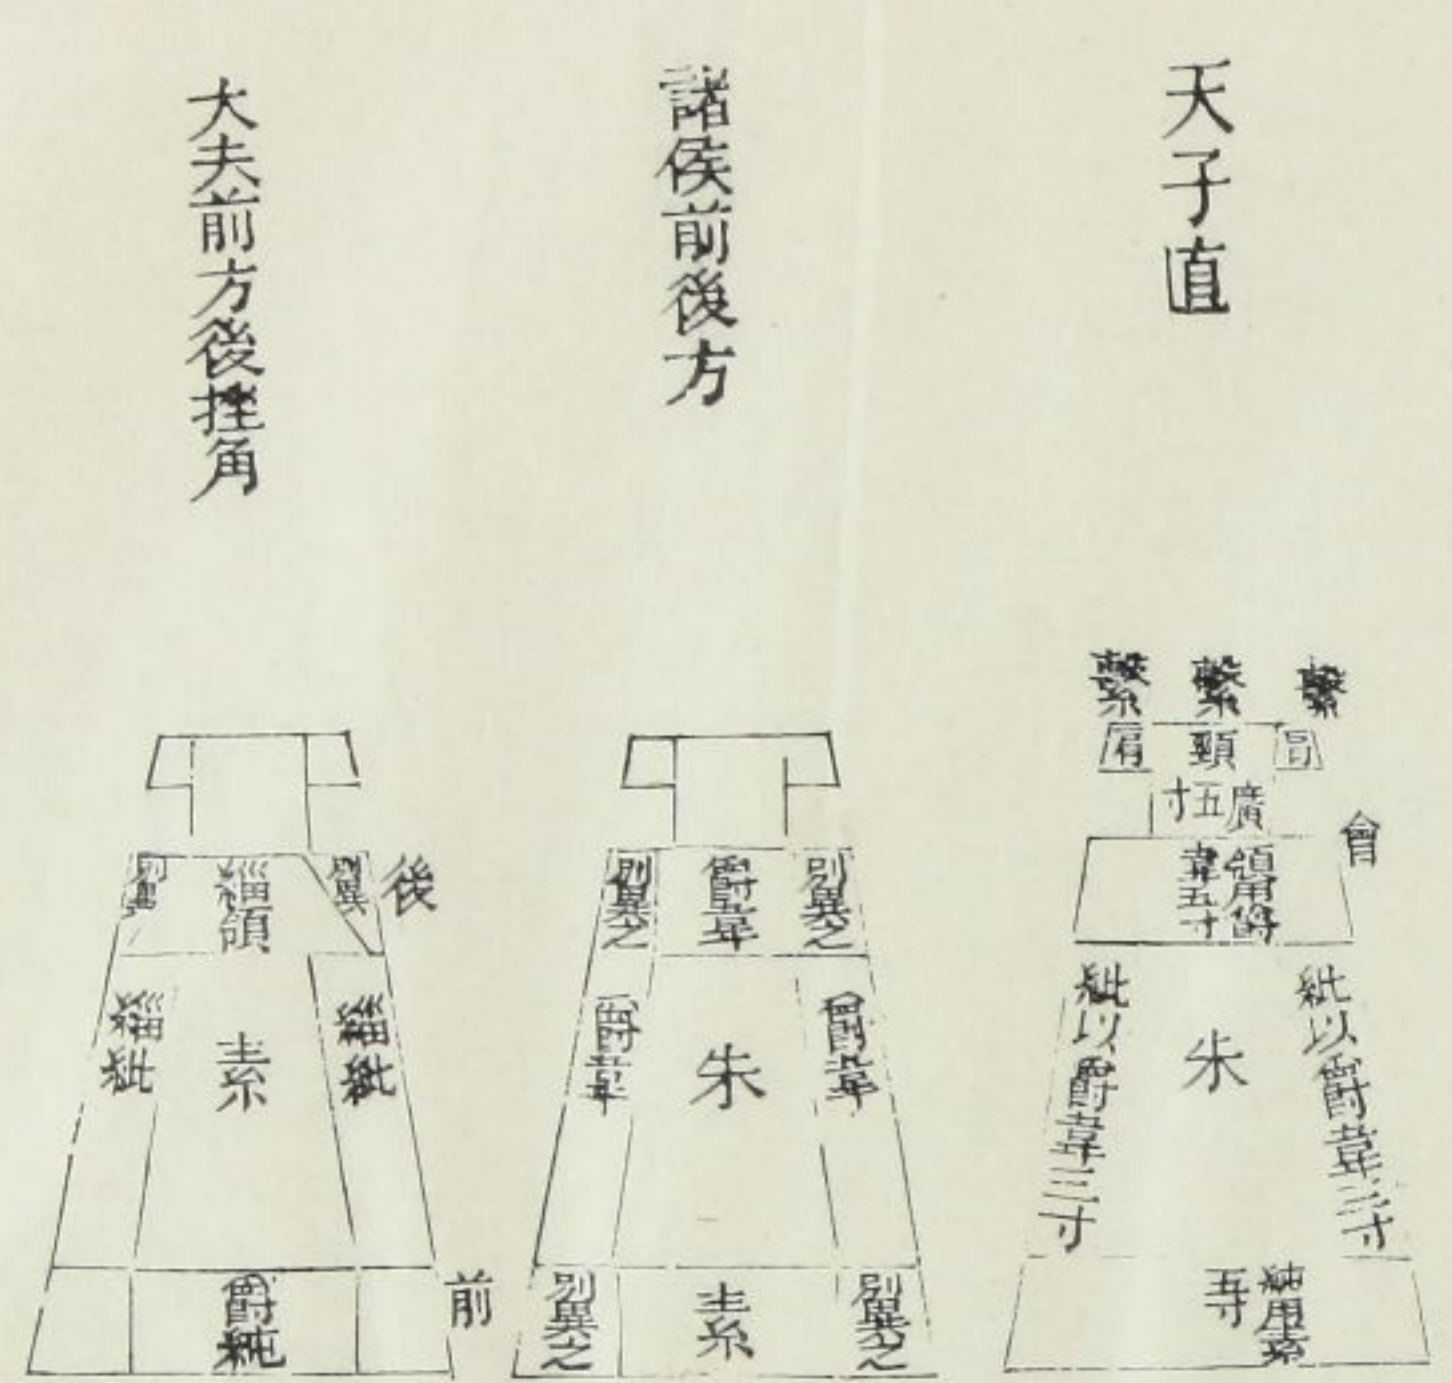 天子直
繫
繫
繫
肩
頸
肩
廣五寸
會
領用爵
韋五寸
紕以爵韋三寸
朱
紕以爵韋三寸
純用素
五寸
諸侯前後方
別異之
爵韋
別異之
爵韋
朱
爵韋
別異之
素
別異之
大夫前方後挫角
後
別異
緇領
別異
緇紕
素
緇紕
前
爵純